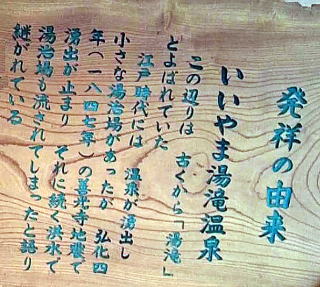 発祥の由来
いいやま湯滝温泉
この辺りは 古くから「湯滝」
とよばれていた
江戸時代には 温泉が湧出し
小さな湯治場があったが 弘化四
年(一八四七年)の善光寺地震で
湧出が止まり それに続く洪水で
湯治場も流されてしまったと語り
継がれている